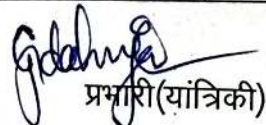 प्रभारी(यांत्रिकी)